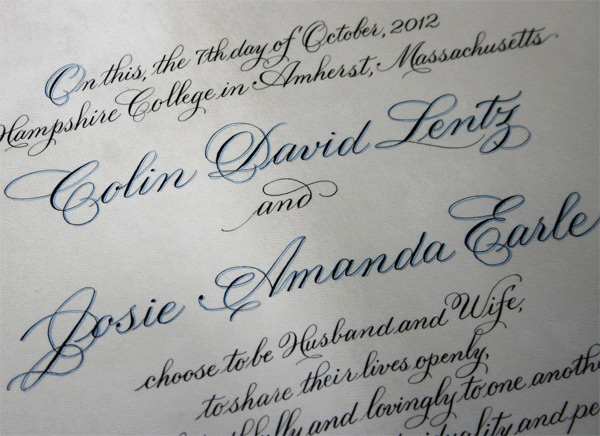 On this, the 7th day of October, 2012
Hampshire College in Amherst, Massachusetts
Colin David Lentz
and
Josie Amanda Earle
choose to be Husband and Wife,
to share their lives openly,
and lovingly to one
and